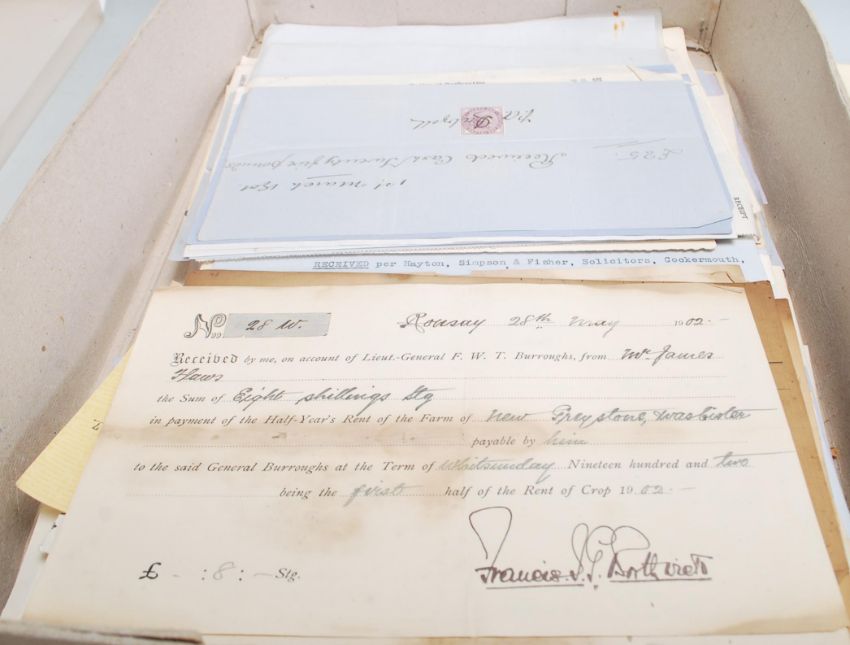 No. 28 W. Rousay 28th May 1902.-
Received by me, on account of Lieut.-General F. W. T. Burroughs, from Mr James
Flaws
the Sum of Eight shillings Stg
in payment of the Half-Year's Rent of the Farm of New Greystone, Wasbister
payable by him
to the said General Burroughs at the Term of Whitsunday Nineteen hundred and two
being the first half of the Rent of Crop 1902.-
£ - : 8 : - Stg.
Francis S. G. Borthwick
RECEIVED per Hayton, Simpson & Fisher, Solicitors, Cockermouth,
1st March 1801
Received Cash Twenty five pounds
£25.